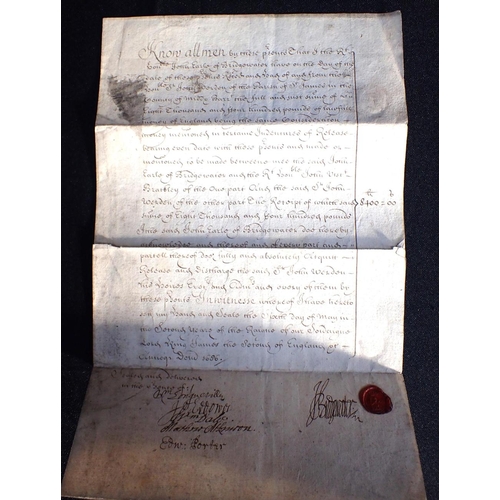 Know all men by these presents That I the Rt
Honble John Earle of Bridgewater have on the Day of the
Date of these presents Received and had of and from the
Worshll Sr John Werden of the Parish of St James in the
County of Middx Barrt the full and just summe of
Eight Thousand and four hundred pounds of lawfull
money of England being the same Consideration
money menconed in certaine Indentures of Release
bearing even date with these presents and made or
menconed to be made betweene mee the said John
Earle of Bridgewater and the Rt Honble John Visc
Brackley of the one part And the said Sr John
Werden of the other part The Receipt of which said
summe of Eight Thousand and four hundred pounds
I the said John Earle of Bridgewater doe hereby
acknowledge and thereof and of every part and
parcell thereof doe fully and absolutely Acquitt
Release and discharge the said Sr John Werden
his Heires Execrs and Admrs and every of them by
these presents In witnesse whereof I have hereto
sett my Hand and Seale the Sixth day of May in
the Second Yeare of the Raigne of our Soveraigne
Lord King James the Second of England &c
Annoqe Domi 1686
8400=00
Sealed and delivered
in the presence of
Martin Atkinson
Edw: Porter
J Bridgewater